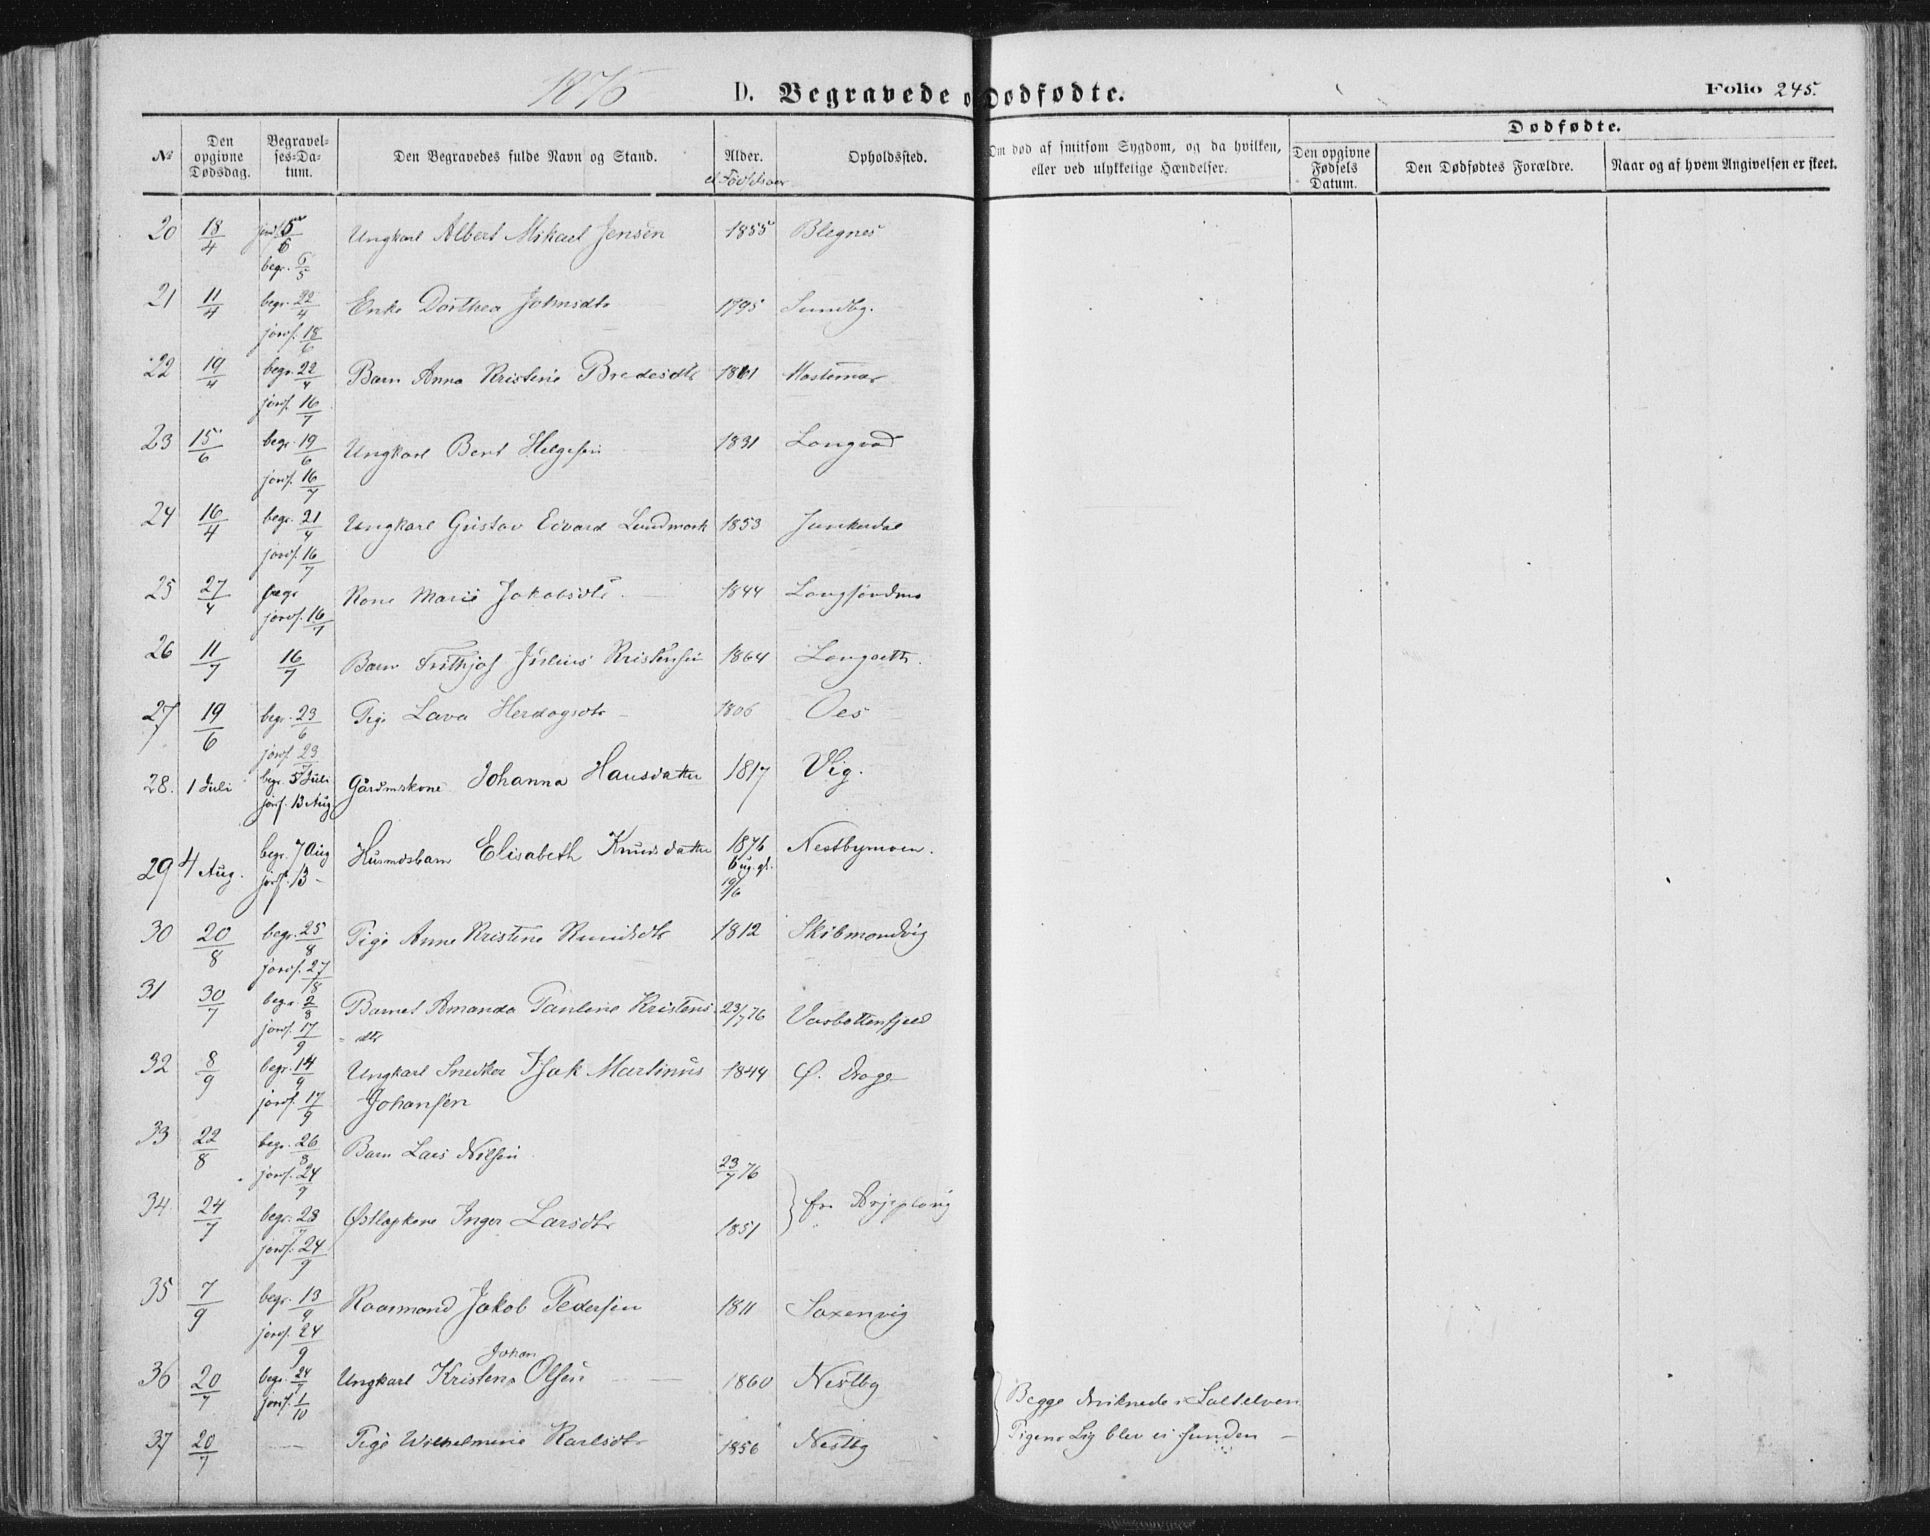 1876 D. Begravede o Dødfødte. Folio 245.
Dødfødte.
№ Den opgivne Dødsdag. Begravelses-Datum. Den Begravedes fulde Navn og Stand. Alder. Opholdssted. Om død af smitsom Sygdom, og da hvilken, eller ved ulykkelige Hændelser. Den opgivne Fødsels Datum. Den Dødfødtes Forældre. Naar og af hvem Angivelsen er skeet.
20 18/4 begr. 6/5 Ungkarl Albert Mikael Jensen 1855 Blegnes
21 11/4 begr. 22/4 jordf. 18/6 Enke Dorthea Johnsdtr 1795 Sundby.
22 19/4 begr. 22/4 jordf. 16/7 Barn Anna Kristine Bredesdtr 1861
23 15/6 begr. 19/6 jordf. 16/7 Ungkarl Bent Helgesen 1831 Longvad
24 16/4 begr. 21/4 jordf. 16/7 Ungkarl Gustav Edvard Lundmark 1853 Junkerdal
25 27/4 begr jordf. 16/7 Kone Marie Jakobsdtr 1844
26 11/7 16/7 Barn Frithjof Julius Kristensen 1864
27 19/6 begr. 23/6 jordf. 23/7 Pige Lava Herdagsdtr 1806 Oes
28. 1 Juli begr. 5 Juli jordf. 13 Aug Gårdmskone Johanna Hansdatter 1817 Vig.
29 4 Aug. begr. 7 Aug jordf. 13 - Husmdsbarn Elisabeth Knudsdatter 1876 6 ug. gl. 19/6 Nestbymoen.
30 20/8 begr. 25/8 jordf. 27/8 Pige Anne Kristine Knudsdtr 1812 Skibmondvig
31 30/7 begr. 2/8 jordf. 17/9 Barnet Amanda Pauline Kristens 23/7 76 Vasbottenfjeld
- dtr
32 8/9 begr. 14/9 jordf. 17/9 Ungkarl Snedker Isak Martinus 1844 Ø. Drage
Johansen
33 22/8 begr. 26/8 jordf. 24/9 Barn Lars Nilsen 23/7 76
34 24/7 begr. 28/7 jordf. 24/9 Østlapkone Inger Larsdtr 1851 } fra Arjeploug
35 7/9 begr. 13/9 jordf. 24/9 Kaarmand Jakob Pedersen 1811 Saxenvig
Johan
36 20/7 begr. 24/7 jordf. 1/10 Ungkarl Kristen Olsen 1860 Nestby Begge druknede i Saltelven
37 20/7 — Pige Wilhelmine Karlsdtr 1856 Nestby Pigens Lig blev ei funden —